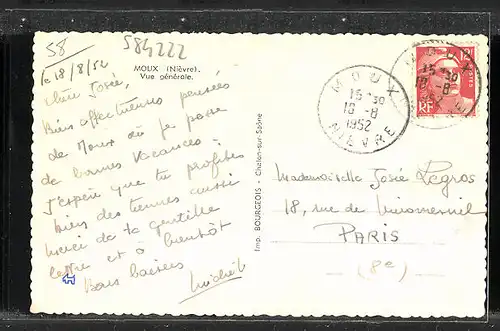 58
584222
MOUX (Nièvre).
Vue générale.
le 18/8/52
Chère Josée,
Bien affectueuses pensées
de Moux où je passe
de bonnes vacances.
J'espère que tu profites
bien des tiennes aussi
merci de ta gentille
lettre et à bientôt
Bons baisers
Imp. BOURGEOIS - Chalon-sur-Saône
MOUX
15 30
18 - 8
1952
NIEVRE
MOUX
15 30
18 - 8
RF
POSTES
Mademoiselle Josée Legros
18, rue de Miromesnil
PARIS
(8e)